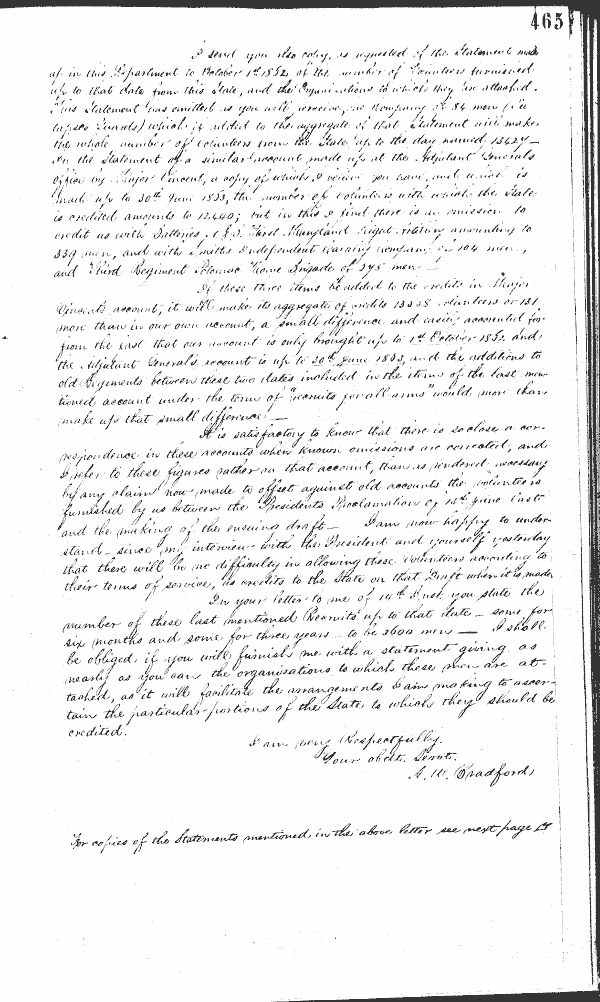 465
I send you also copy, as requested of the Statement made
up in this Department to October 1st 1862, of the number of Volunteers furnished
up to that date from this State, and the Organizations to which they are attached.
This Statement has omitted as you will perceive, one Company of 84 men
which if added to the aggregate of that Statement will make
the whole number of volunteers from the State up to the day named 13427 —
In the Statement of a similar account made up at the Adjutant Generals
Office by Major Vincent, a copy of which I believe you have, and which is
made up to 30th June 1863, the number of Volunteers with which the State
is credited amounts to 12440; but in this I find there is an omission to
credit us with Batteries A & B First Maryland Light Artillery amounting to
339 men, and with Smiths Independent Cavalry Company of 104 men,
and Third Regiment Potomac Home Brigade of men —
If these three items be added to the credits in Major
Vincents account, it will make its aggregate of credits Volunteers or 131
more than in our own account, a small difference and easily accounted for
from the fact that our account is only brought up to 1st October 1862 and
the Adjutant General's account is up to 30th June 1863, and the additions to
old Regiments between these two dates included in the items of the last men-
tioned account under the term of "recruits for all arms" would more than
make up that small difference —
It is satisfactory to know that there is so close a cor-
respondence in these accounts when known omissions are corrected, and
I refer to these figures rather on that account, than as rendered necessary
by any claim now made to offset against old accounts the volunteers
furnished by us between the Presidents Proclamation of 15th June last
and the making of the ensuing draft — I am now happy to under-
stand — since my interview with the President and yourself yesterday
that there will be no difficulty in allowing these Volunteers according to
their terms of service, as credits to the State on that Draft when it is made.
In your letter to me of 14th Inst. you state the
number of these last mentioned Recruits up to that date — some for
six months and some for three years — to be 3600 men — I shall
be obliged if you will furnish me with a statement giving as
nearly as you can the organisations to which these men are at-
tached, as it will facilitate the arrangements I am making to ascer-
tain the particular portions of the State to which they should be
credited.
I am very Respectfully.
Your obdt. Servt.
A. W. Bradford
For copies of the Statements mentioned in the above letter see next page